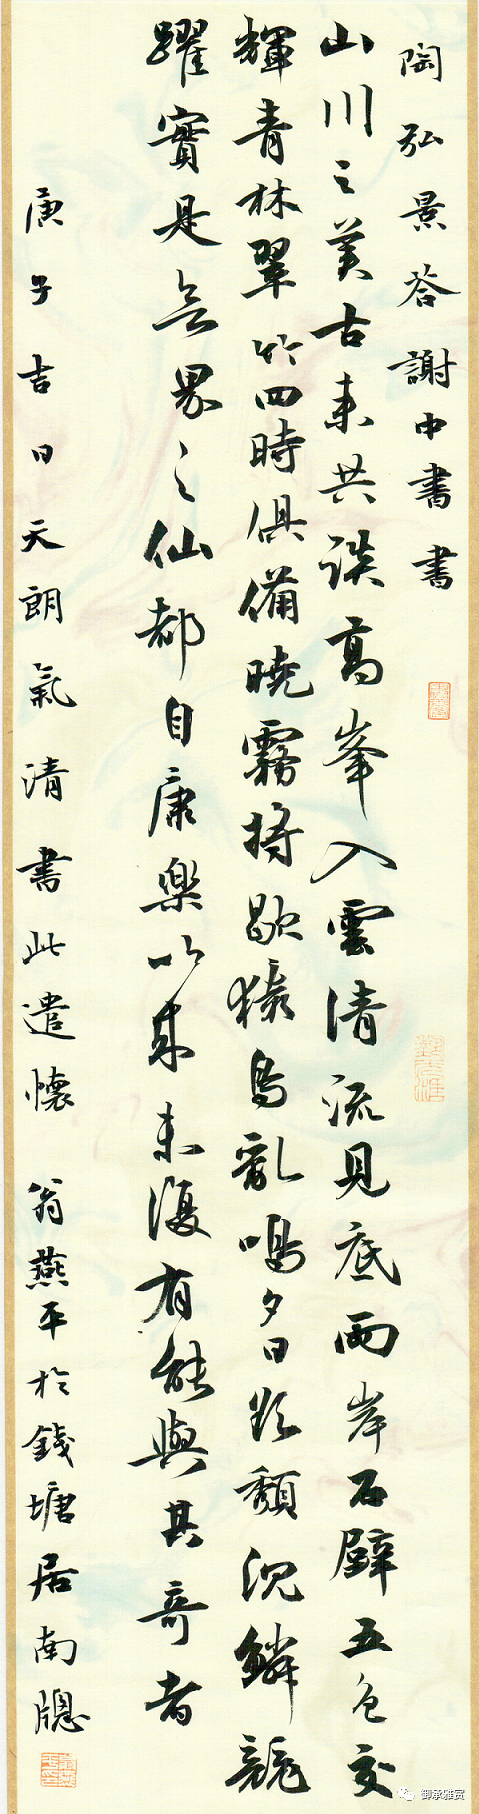 陶弘景荅謝中書書
山川之美古来共談高峯入雲清流見底兩岸石壁五色交
輝青林翠竹四時俱備曉霧将歇猿鳥亂鳴夕日欲頹沉鱗競
躍實是界之仙都自康樂以来未復有能與其奇者
庚子吉日天朗氣清書此遣懷 翁燕平於錢塘居南牕
御承雅赏